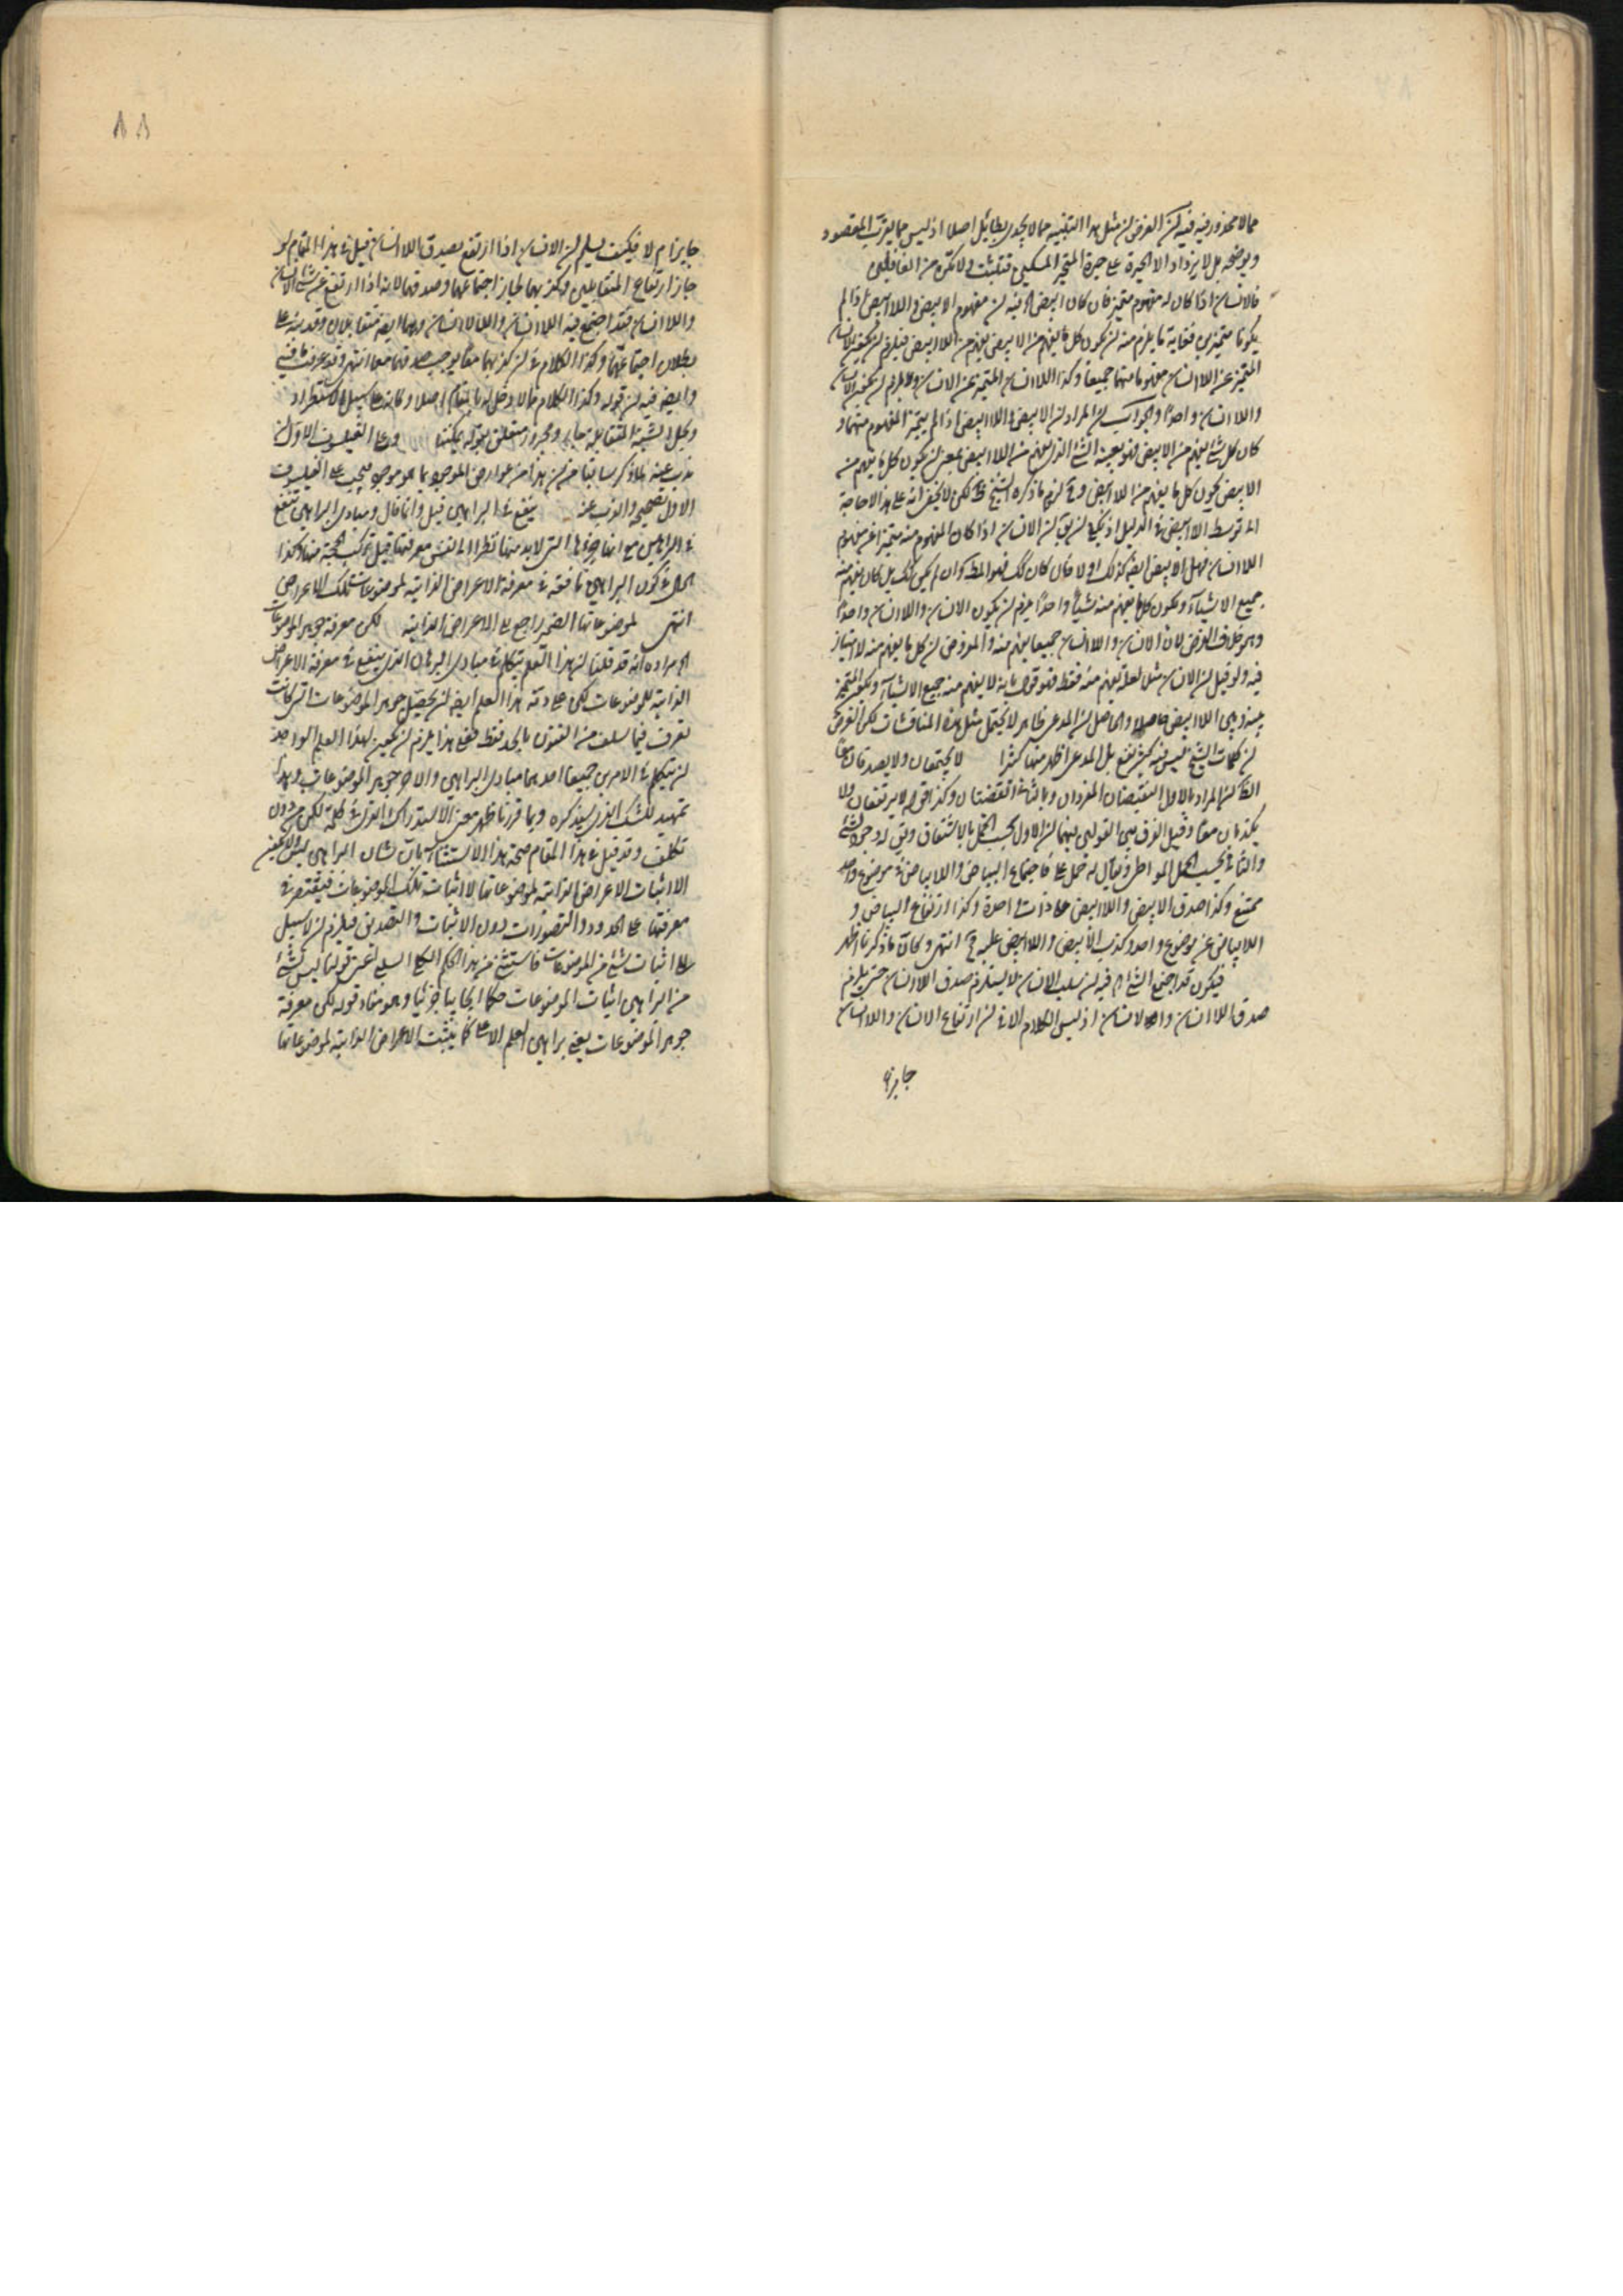 مما لا محذور فيه فيه لكن الغرض ان مثل هذا التنبيه مما لا يجدى بطائل اصلا اذ ليس مما يقرب المقصود
ويوضحه بل لا يزداد الا الحيرة على حيرة المتحير المسكين فتثبت و لا تكن من الغافلين
فالانسان اذا كان له مفهوم متميز فان كان ابيض الخ فيه ان مفهوم الابيض و اللاابيض اذا لم
يكونا متميزين فغاية ما يلزم منه ان يكون كل ما يفهم من الابيض يفهم من اللاابيض فيلزم ان يكون الانسان
المتميز عن اللاانسان مفهوما منهما جميعا وكذا اللاانسان المتميز عن الانسان ولا يلزم ان يكون الانسان
واللاانسان واحدا والجواب ان المراد ان الابيض و اللاابيض اذا لم يتميز المفهوم منهما و
كان كل شئ يفهم من الابيض فهو بعينه الشئ الذى يفهم من اللاابيض بمعنى ان يكون كل ما يفهم من
الابيض يكون كل ما يفهم من اللاابيض و ح لزم ما ذكره الشيخ لكن لا يخفى انه على هذا لا حاجة
الى توسط الابيض فى الدليل اذ يكفى ان يق ان الانسان اذا كان المفهوم منه متميزا عن مفهوم
اللاانسان فهل الابيض ايضا كذلك او لا فان كان كك فهو المط وان لم يكن كك بل كان يفهم منه
جميع الاشياء ويكون كل ما يفهم منه شيئا واحدا يلزم ان يكون الانسان واللاانسان واحدا
وهو خلاف الفرض لان الانسان واللاانسان جميعا يفهم منه والمفروض ان كل ما يفهم منه لا امتياز
فيه ولو قيل ان الانسان مثل لعله يفهم منه فقط فهو قول بانه لا يفهم منه جميع الاشياء ويكون التميز
بينه وبين اللاابيض حاصلا والحاصل ان المدعى ظاهر لا يحتمل مثل هذه المناقشات لكن الغرض
ان كلمات الشيخ ليس فيه كثير نفع بل المدعى اظهر منها كثيرا لا يجتمعان ولا يصدقان معا
الظ ان المراد بالاول النقيضان المفردان وبالثانى القضيتان وكذا قوله لا يرتفعان ولا
يكذبان معا وقيل الفرق بين القولين بينهما ان الاول بحسب الحمل بالاشتقاق وبقى له وجود لشئ
والثانى بحسب الحمل المواطى ويقال له حمل على فاجتماع البياض واللابياض فى موضوع واحد
ممتنع وكذا صدق الابيض واللاابيض على ذات واحدة وكذا ارتفاع البياض و
اللابياض عن موضوع واحد وكذب الابيض واللاابيض عليه انتهى وكان ما ذكرنا اظهر
فيكون قد اجتمع الشئ الخ فيه ان سلب الانسان لا يستلزم صدق اللاانسان حتى يلزم
صدق اللاانسان واللالاانسان اذ ليس الكلام الا فى ان ارتفاع الانسان واللاانسان
جايز
٨٨
جايز ام لا فكيف يسلم ان الانسان اذا ارتفع يصدق اللاانسان قيل فى هذا المقام لو
جاز ارتفاع المتقابلين وكذبهما لجاز اجتماعهما وصدقهما لانه اذا ارتفع عن شئ الانسان
واللاانسان فقد اجتمع فيه اللاانسان واللالاانسان وهما ايضا متقابلان وقد بين
بطلان اجتماعهما وكذا الكلام فى ان كذبهما معا يوجب صدقهما معا انتهى وقد عرفت ما فيه
وايضا فيه ان قوله وكذا الكلام مما لا دخل له بالمقام اصلا وكانه على سبيل الاستطراد
وتحل الشبه المتقابلة جار ومجرور متعلق بقوله يمكننا وعلى الفيلسوف الاول ان
يذب عنه لما ذكر سابقا من ان هذا من عوارض الموجود بما هو موجود فيجب على الفيلسوف
الاول تصحيحه والذب عنه ينفع فى البراهين قيل وانما قال ومبادى البراهين تنفع
فى البراهين مع انها جزءها التى لا بد منها نظرا الى نفس معرفتها قبل تركيب الحجة منها وكذا
الحال فى كون البراهين نافعة فى معرفة الاعراض الذاتية لموضوعات تلك الاعراض
انتهى لموضوعاتها الضمير راجع الى الاعراض الذاتية لكن معرفة جوهر الموضوعات
الخ مراده انه قد قلنا ان هذا التعلم يتكلم فى مبادى البرهان الذى ينفع فى معرفة الاعراض
الذاتية للموضوعات لكن عادة هذا العلم ايضا ان تحصيل جوهر الموضوعات التى كانت
تعرف فيما سلف من الفنون بالحد فقط فعلى هذا يلزم ان يكون لهذا العلم الواحد
ان يتكلم فى الامرين جميعا احدهما مبادى البراهين والاخر جوهر الموضوعات وهذا
تمهيد للشك الذى سيذكره وبما قررنا ظهر معنى الاستدراك الذى فى كلمة لكن من دون
تكلف وقد قيل فى هذا المقام صحة هذا الاستثناء بان شان البراهين ليس
الا اثبات الاعراض الذاتية لموضوعاتها لا اثبات تلك الموضوعات فيقتصر فى
معرفتها على الحدود والتصورات دون الاثبات والتصديق فيلزم ان لا سبيل
الى اثبات شئ من الموضوعات فاستثنى من هذا الحكم الكلى السلبى اعنى قولنا ليس شئ
من البراهين اثبات الموضوعات حكما ايجابيا جزئيا وهو مفاد قوله لكن معرفة
جوهر الموضوعات يعنى براهين العلم الاعلى كما يثبت الاعراض الذاتية لموضوعاتها